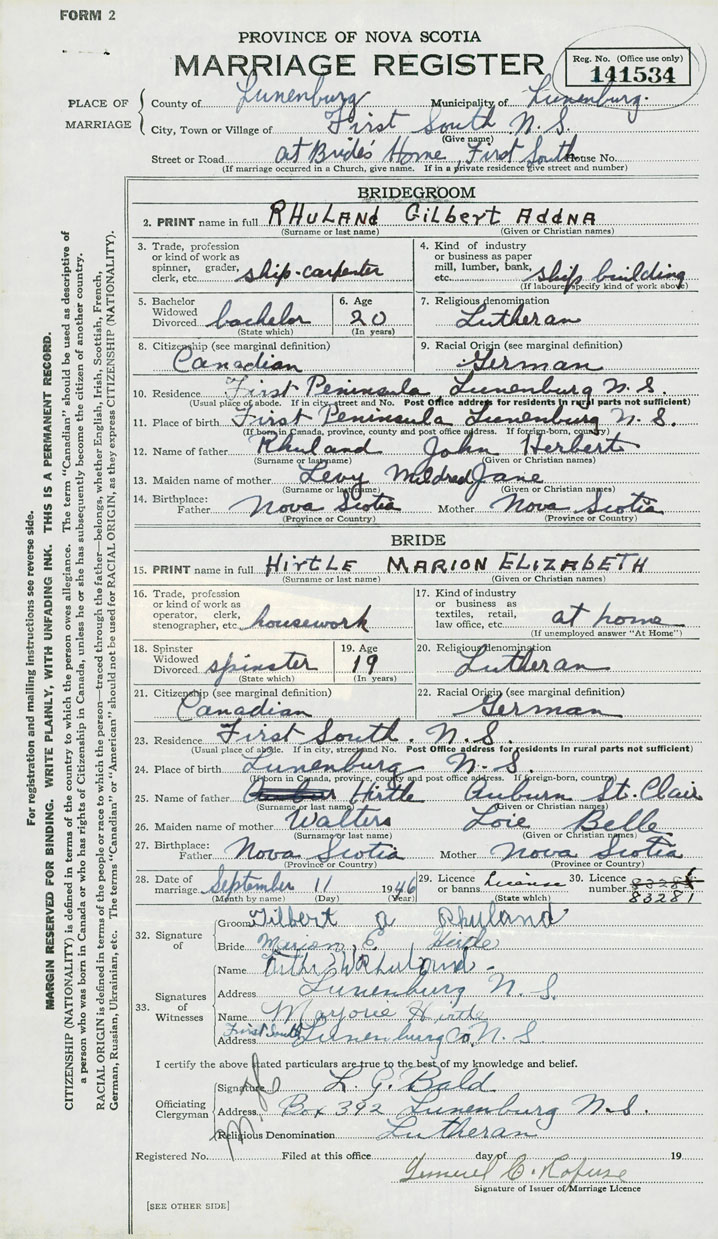 FORM 2
PROVINCE OF NOVA SCOTIA
MARRIAGE REGISTER
Reg. No. (Office use only)
141534
PLACE OF MARRIAGE
County of Lunenburg Municipality of Lunenburg.
City, Town or Village of First South N.S.
(Give name)
Street or Road at Bride's Home, First South House No.
(If marriage occurred in a Church, give name. If in a private residence give street and number)
BRIDEGROOM
2. PRINT name in full RHULAND Gilbert ADDNA
(Surname or last name) (Given or Christian names)
3. Trade, profession or kind of work as spinner, grader, clerk, etc. ship-carpenter
4. Kind of industry or business as paper mill, lumber, bank, etc. ship building
(If labourer specify kind of work above)
5. Bachelor Widowed Divorced bachelor
(State which)
6. Age 20
(In years)
7. Religious denomination
Lutheran
8. Citizenship (see marginal definition)
Canadian
9. Racial Origin (see marginal definition)
German
10. Residence First Peninsula, Lunenburg N.S.
(Usual place of abode. If in city, street and No. Post Office address for residents in rural parts not sufficient)
11. Place of birth First Peninsula Lunenburg N.S.
(If born in Canada, province, county and post office address. If foreign-born, country)
12. Name of father Rhuland John Herbert
(Surname or last name) (Given or Christian names)
13. Maiden name of mother Levy Mildred Jane
(Surname or last name) (Given or Christian names)
14. Birthplace: Father Nova Scotia Mother Nova Scotia
(Province or Country) (Province or Country)
BRIDE
15. PRINT name in full HIRTLE MARION ELIZABETH
(Surname or last name) (Given or Christian names)
16. Trade, profession or kind of work as operator, clerk, stenographer, etc. housework
17. Kind of industry or business as textiles, retail, law office, etc. at home
(If unemployed answer "At Home")
18. Spinster Widowed Divorced spinster
(State which)
19. Age 19
(In years)
20. Religious denomination
Lutheran
21. Citizenship (see marginal definition)
Canadian
22. Racial Origin (see marginal definition)
German
23. Residence First South. N.S.
(Usual place of abode. If in city, street and No. Post Office address for residents in rural parts not sufficient)
24. Place of birth Lunenburg N.S.
(If born in Canada, province, county and post office address. If foreign-born, country)
25. Name of father Hirtle Auburn St. Clair
(Surname or last name) (Given or Christian names)
26. Maiden name of mother Walters Loie Belle
(Surname or last name) (Given or Christian names)
27. Birthplace: Father Nova Scotia Mother Nova Scotia
(Province or Country) (Province or Country)
28. Date of marriage September 11 1946
(Month by name) (Day) (Year)
29. Licence or banns License
(State which)
30. Licence number 83281
32. Signature of
Groom Gilbert a Rhuland
Bride Marion E. Hirtle
33. Signatures of Witnesses
Name
Address Lunenburg N.S.
Name Marjorie Hirtle
Address First South Lunenburg Co, N.S.
I certify the above stated particulars are true to the best of my knowledge and belief.
Officiating Clergyman
Signature L. G. Bald
Address Box 392 Lunenburg N.S.
Religious Denomination Lutheran
Registered No. Filed at this office day of 19
Signature of Issuer of Marriage Licence
[SEE OTHER SIDE]
For registration and mailing instructions see reverse side.
MARGIN RESERVED FOR BINDING. WRITE PLAINLY, WITH UNFADING INK. THIS IS A PERMANENT RECORD.
CITIZENSHIP (NATIONALITY) is defined in terms of the country to which the person owes allegiance. The term "Canadian" should be used as descriptive of
a person who was born in Canada or who has rights of Citizenship in Canada, unless he or she has subsequently become the citizen of another country.
RACIAL ORIGIN is defined in terms of the people or race to which the person—traced through the father—belongs, whether English, Irish, Scottish, French,
German, Russian, Ukrainian, etc. The terms "Canadian" or "American" should not be used for RACIAL ORIGIN, as they express CITIZENSHIP (NATIONALITY).